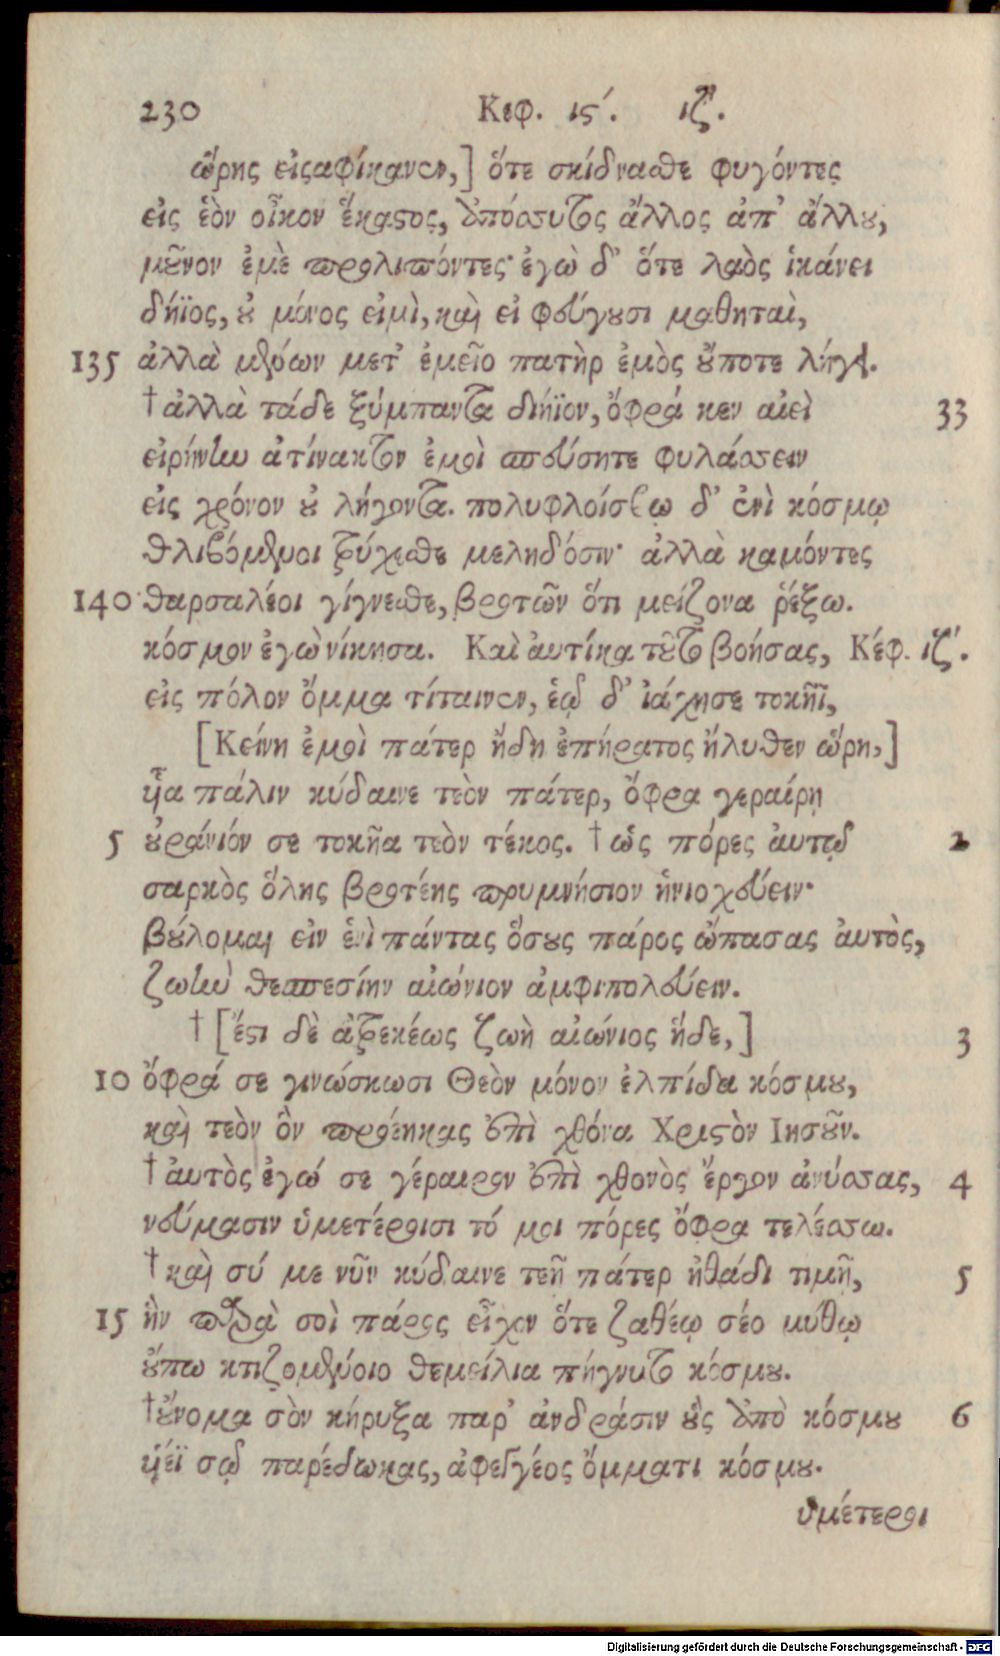 230 Κεφ. ις΄. ιζ΄.
ὥρης εἰςαφίκανεν,] ὅτε σκίδναϑε φυγόντες
εἰς ἑὸν οἶκον ἕκαςος, ὑπόσσυτος ἄλλος ἀπ' ἄλλου,
μοῦνον ἐμὲ προλιπόντες· ἐγὼ δ' ὅτε λαὸς ἱκάνει
δήϊος, οὐ μόνος εἰμὶ, καὶ εἰ φεύγουσι μαθηταὶ,
135 ἀλλὰ μένων μετ' ἐμεῖο πατὴρ ἐμὸς οὔποτε λήγει.
† ἀλλὰ τάδε ξύμπαντα διήϊον, ὄφρά κεν αἰεὶ 33
εἰρήνην ἀτίνακτον ἐμοὶ σπεύσητε φυλάσσειν
εἰς χρόνον οὐ λήγοντα. πολυφλοίσβῳ δ' ἐνὶ κόσμῳ
θλιβόμενοι τρύχεσθε μεληδόσιν· ἀλλὰ καμόντες
140 θαρσαλέοι γίγνεσθε, βροτῶν ὅτι μείζονα ῥέξω.
κόσμον ἐγὼ νίκησα. Καὶ αὐτίκα τοῦτο βοήσας, Κέφ. ιζ΄.
εἰς πόλον ὄμμα τίταινεν, ἑῷ δ' ἰάχησε τοκῆϊ,
[Κείνη ἐμοὶ πάτερ ἤδη ἐπήρατος ἤλυθεν ὥρη,]
ἧα πάλιν κύδαινε τεὸν πάτερ, ὄφρα γεραίρῃ
5 οὐράνιόν σε τοκῆα τεὸν τέκος. † ὥς πόρες αὐτῷ 2
σαρκὸς ὅλης βροτέης πρυμνήσιον ἡνιοχεύειν·
βούλομαι εἰν ἑνὶ πάντας ὅσους πάρος ὤπασας αὐτὸς,
ζωὴν θεσπεσίην αἰώνιον ἀμφιπολεύειν.
† [ἔςι δὲ ἀτρεκέως ζωὴ αἰώνιος ἥδε,] 3
10 ὄφρά σε γινώσκωσι Θεὸν μόνον ἐλπίδα κόσμου,
καὶ τεὸν ὃν προέηκας ἐπὶ χθόνα Χριςὸν Ιησοῦν.
† αὐτὸς ἐγώ σε γέραιρον ἐπὶ χθονὸς ἔργον ἀνύσσας, 4
νεύμασιν ὑμετέροισι τό μοι πόρες ὄφρα τελέσσω.
† καὶ σύ με νῦν κύδαινε τεῇ πάτερ ἠθάδι τιμῇ, 5
15 ἣν παρὰ σοὶ πάρος εἶχον ὅτε ζαθέῳ σέο μύθῳ
οὔπω κτιζομένοιο θεμείλια πήγνυτο κόσμου.
† οὔνομα σὸν κήρυξα παρ' ἀνδράσιν οὓς ὑπὸ κόσμου 6
υἱέϊ σῷ παρέδωκας, ἀφεγγέος ὄμματι κόσμου.
ὑμέτεροι
Digitalisierung gefördert durch die Deutsche Forschungsgemeinschaft - DFG